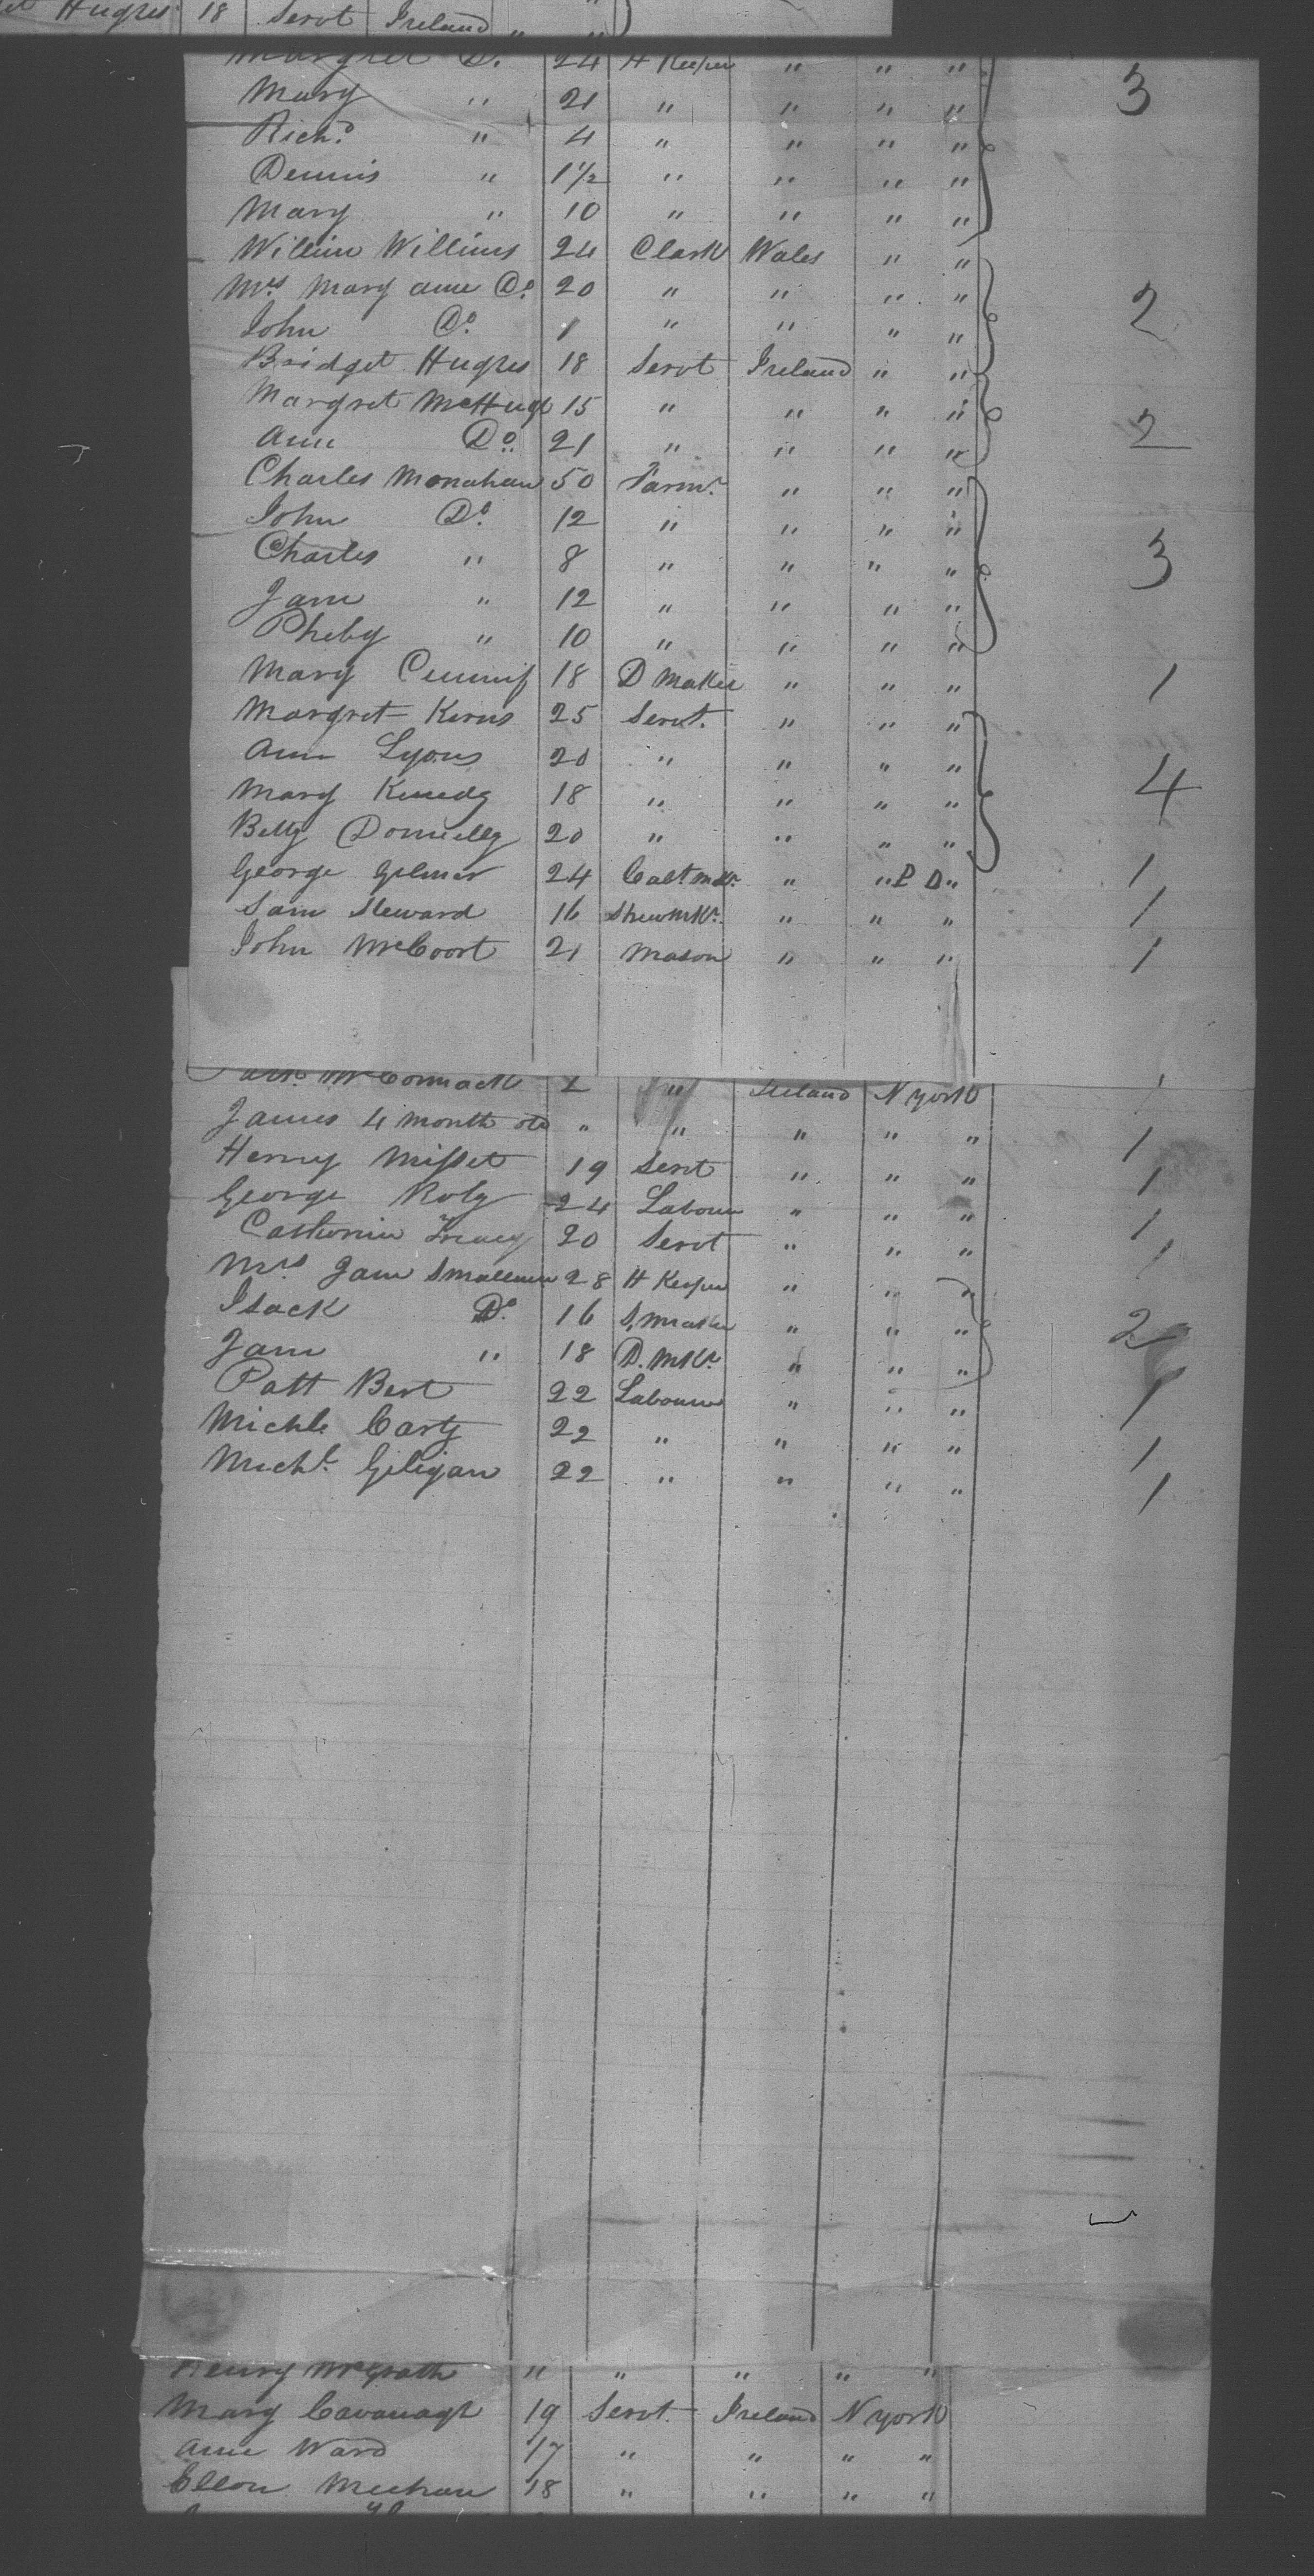 Hughes 18 Servt Ireland " "
Margret Do. 24 H Keeper " " "
Mary " 21 " " " " 3
Richd " 4 " " " "
Dennis " 1 1/2 " " " "
Mary " 10 " " " "
Willim Willims 24 Clark Wales " "
Mrs Mary ann Do. 20 " " " " 2
John Do. 1 " " " "
Bridget Hughes 18 Servt Ireland " "
Margret McHugh 15 " " " "
Ann Do. 21 " " " " 2
Charles Monahan 50 Farmr. " " "
John Do. 12 " " " "
Charles " 8 " " " " 3
Jane " 12 " " " "
Pheby " 10 " " " "
Mary 18 D Maker " " " 1
Margret Kerns 25 Servt. " " "
Ann Lyons 20 " " " "
Mary Kenedy 18 " " " " 4
Betty Donnelly 20 " " " "
George Gilmer 24 Cabt. Mkr. " " P D " 1
Sam Steward 16 Shewmkr. " " " 1
John McCoort 21 Mason " " " 1
McCormack " Ireland N York
James 4 month old " " " " " 1
Henry Misset 19 Servt " " " 1
George Roly 24 Labourer " " " 1
Catherine Tracy 20 Servt " " " 1
Mrs Jane 28 H Keeper " " "
Isack Do. 16 S, maker " " " 2
Jane " 18 D. Mkr. " " "
Patt Bert 22 Labourer " " " 1
Michl. Carty 22 " " " " 1
Michl. Giligan 22 " " " " 1
Henry McGrath " " " " "
Mary Cavanagh 19 Servt. Ireland N York
Ann Ward 17 " " " "
Ellon Meehan 18 " " " "